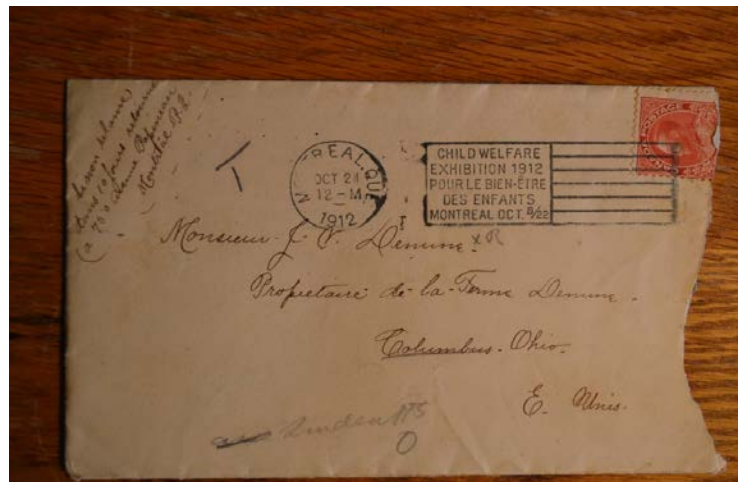 Si non réclamé
dans 10 jours retournez
a 760 Avenue Papineau
Montréal P.Q.
T
MONTREAL, QUE.
OCT 24
12-M
1912
CHILD WELFARE
EXHIBITION 1912
POUR LE BIEN-ÊTRE
DES ENFANTS
MONTREAL OCT. 8/22
POSTAGE
Monsieur J. V. Demune
Proprietaire de la Ferme Demune
Columbus. Ohio.
E. Unis.